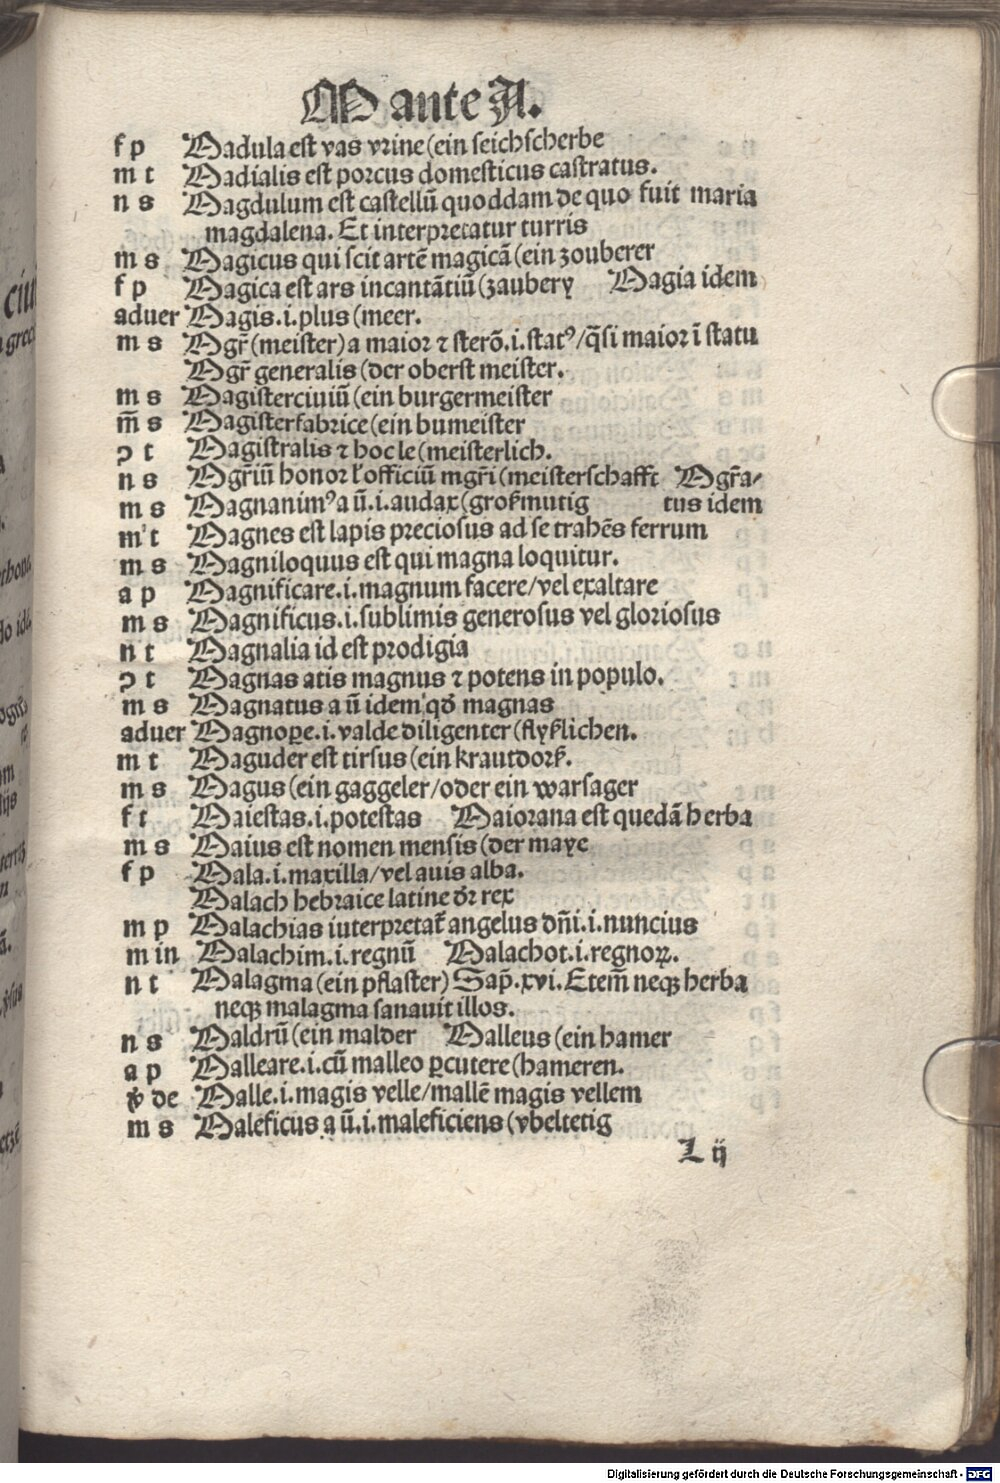 M ante A.
f p Madula est vas vrine (ein seichscherbe
m t Madialis est porcus domesticus castratus.
n s Magdulum est castellũ quoddam de quo fuit maria
magdalena. Et interpretatur turris
m s Magicus qui scit artẽ magicã (ein zouberer
f p Magica est ars incantãtiũ (zaubery Magia idem
aduer Magis .i. plus (meer.
m s Mgr̃ (meister) a maior ⁊ sterõ .i. statꝰ / q̃si maior ĩ statu
Mgr̃ generalis (der oberst meister.
m s Magisterciuiũ (ein burgermeister
m̃ s Magisterfabrice (ein bumeister
ꝯ t Magistralis ⁊ hoc le (meisterlich.
n s Mgr̃iũ honor ł officiũ mgr̃i (meisterschafft Mgr̃a⸗
m s Magnanimꝰ a ũ .i. audax (großmutig tus idem
m t Magnes est lapis preciosus ad se trahẽs ferrum
m s Magniloquus est qui magna loquitur.
a p Magnificare .i. magnum facere / vel exaltare
m s Magnificus .i. sublimis generosus vel gloriosus
n t Magnalia id est prodigia
ꝯ t Magnas atis magnus ⁊ potens in populo.
m s Magnatus a ũ idem qđ magnas
aduer Magnoꝑe .i. valde diligenter (flyßlichen.
m t Maguder est tirsus (ein krautdorß.
m s Magus (ein gaggeler / oder ein warsager
f t Maiestas .i. potestas Maiorana est quedã herba
m s Maius est nomen mensis (der maye
f p Mala .i. maxilla / vel auis alba.
Malach hebraice latine dr̃ rex
m p Malachias iuterpretat̃ angelus dñi .i. nuncius
m in Malachim .i. regnũ Malachot .i. regnoꝝ.
n t Malagma (ein pflaster) Sap̃. xvi. Etem̃ neqꝫ herba
neqꝫ malagma sanauit illos.
n s Maldrũ (ein malder Malleus (ein hamer
a p Malleare .i. cũ malleo ꝑcutere (hameren.
v̾ de Malle .i. magis velle / mallẽ magis vellem
m s Maleficus a ũ .i. maleficiens (vbeltetig
L ij
Digitalisierung gefördert durch die Deutsche Forschungsgemeinschaft - DFG